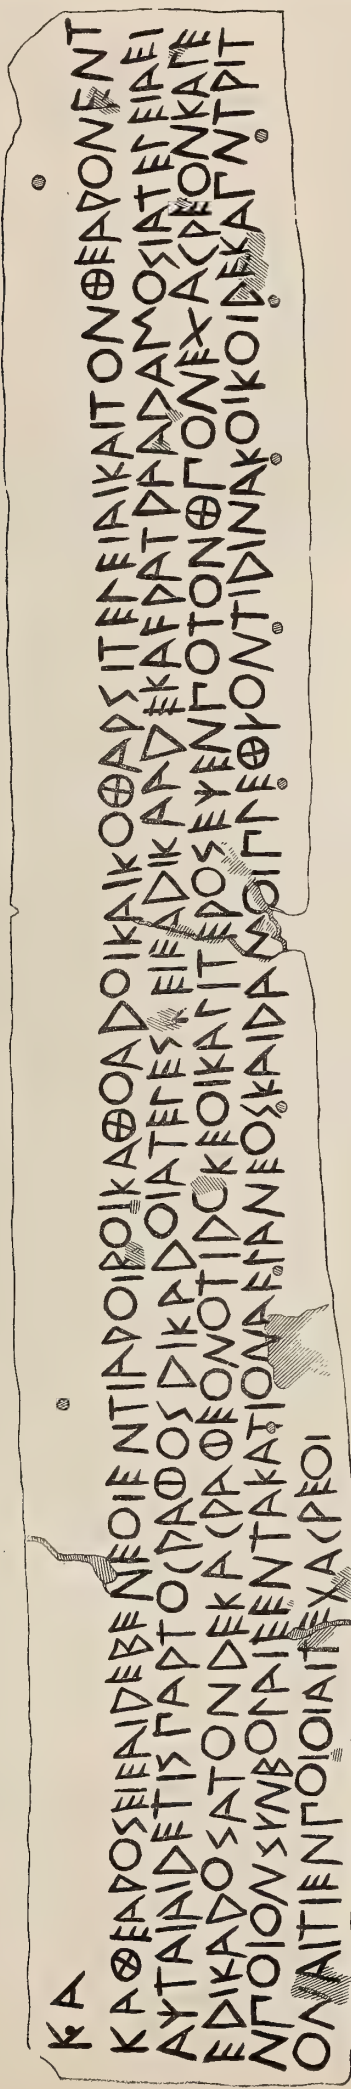 ΚΑ
ΚΑΘΕΑΡΟΣΕΙΕΑΙΔΕΒΕΝΕΟΙΕΝΤΙΑΡΟΙΒΟΙΚΑΘΟΑΔΟΙΚΑΙΚΟΘΑΡΣΙΤΕΛΕΙΑΙΚΑΙΤΟΝΘΕΑΡΟΝΕΝΤ
ΑΥΤΑΙΑΙΔΕΤΙΣΠΑΡΤΟΓΡΑΦΟΣΔΙΚΑΔΟΙΑΤΕΛΕΣΚΕΙΕΑΔΙΚΑΑΔΕΚΑϜΡΑΤΡΑΑΔΑΜΟΣΙΑΤΕΛΕΙΑΕΙ
ΕΔΙΚΑΔΟΣΑΤΟΝΔΕΚΑΓΡΑΦΕΟΝΟΤΙΔΟΚΕΟΙΚΑΛΙΤΕΡΟΣΕΧΕΝΠΟΤΟΝΘΠΟΝΕΞΑΓΡΕΟΝΚΑΙΕ
ΝΠΟΙΟΝΣΥΝΒΟΛΑΙΕΕΝΤΑΚΑΤΙΟΝΑϜΛΑΝΕΟΣΚΑΙΔΑΜΟΙΠΛΕΘΥΟΝΤΙΔΙΝΑΚΟΙΚΟΙΔΕΚΑΛΝΤΡΙΤ
ΟΝΑΙΤΙΕΝΠΟΙΟΙΑΙΤΕΞΑΓΡΕΟΙ